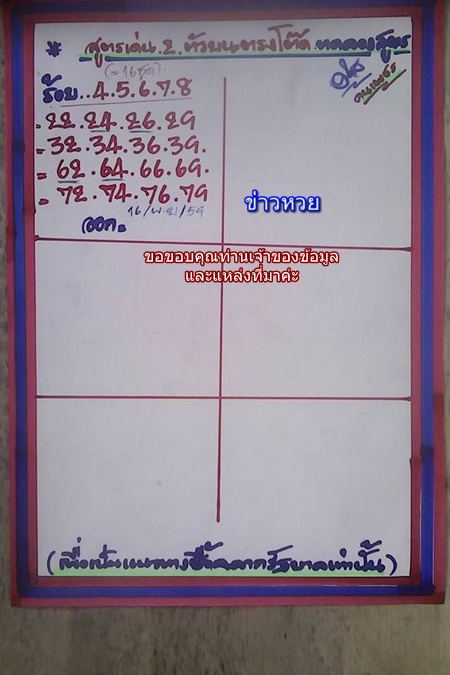 * สูตรเด่น.2.ตัวบนตรงโต๊ด.ทดลองสูตร
(=16ชุด)
ร้อย..4.5.6.7.8
= 22.24.26.29
= 32.34.36.39.
= 62.64.66.69.
= 72.74.76.79
16/พ.ย/59
ออก=
ข่าวหวย
ขอขอบคุณท่านเจ้าของข้อมูล
และแหล่งที่มาค่ะ
(เพื่อเป็นแนวทางซื้อสลากรัฐบาลเท่านั้น)